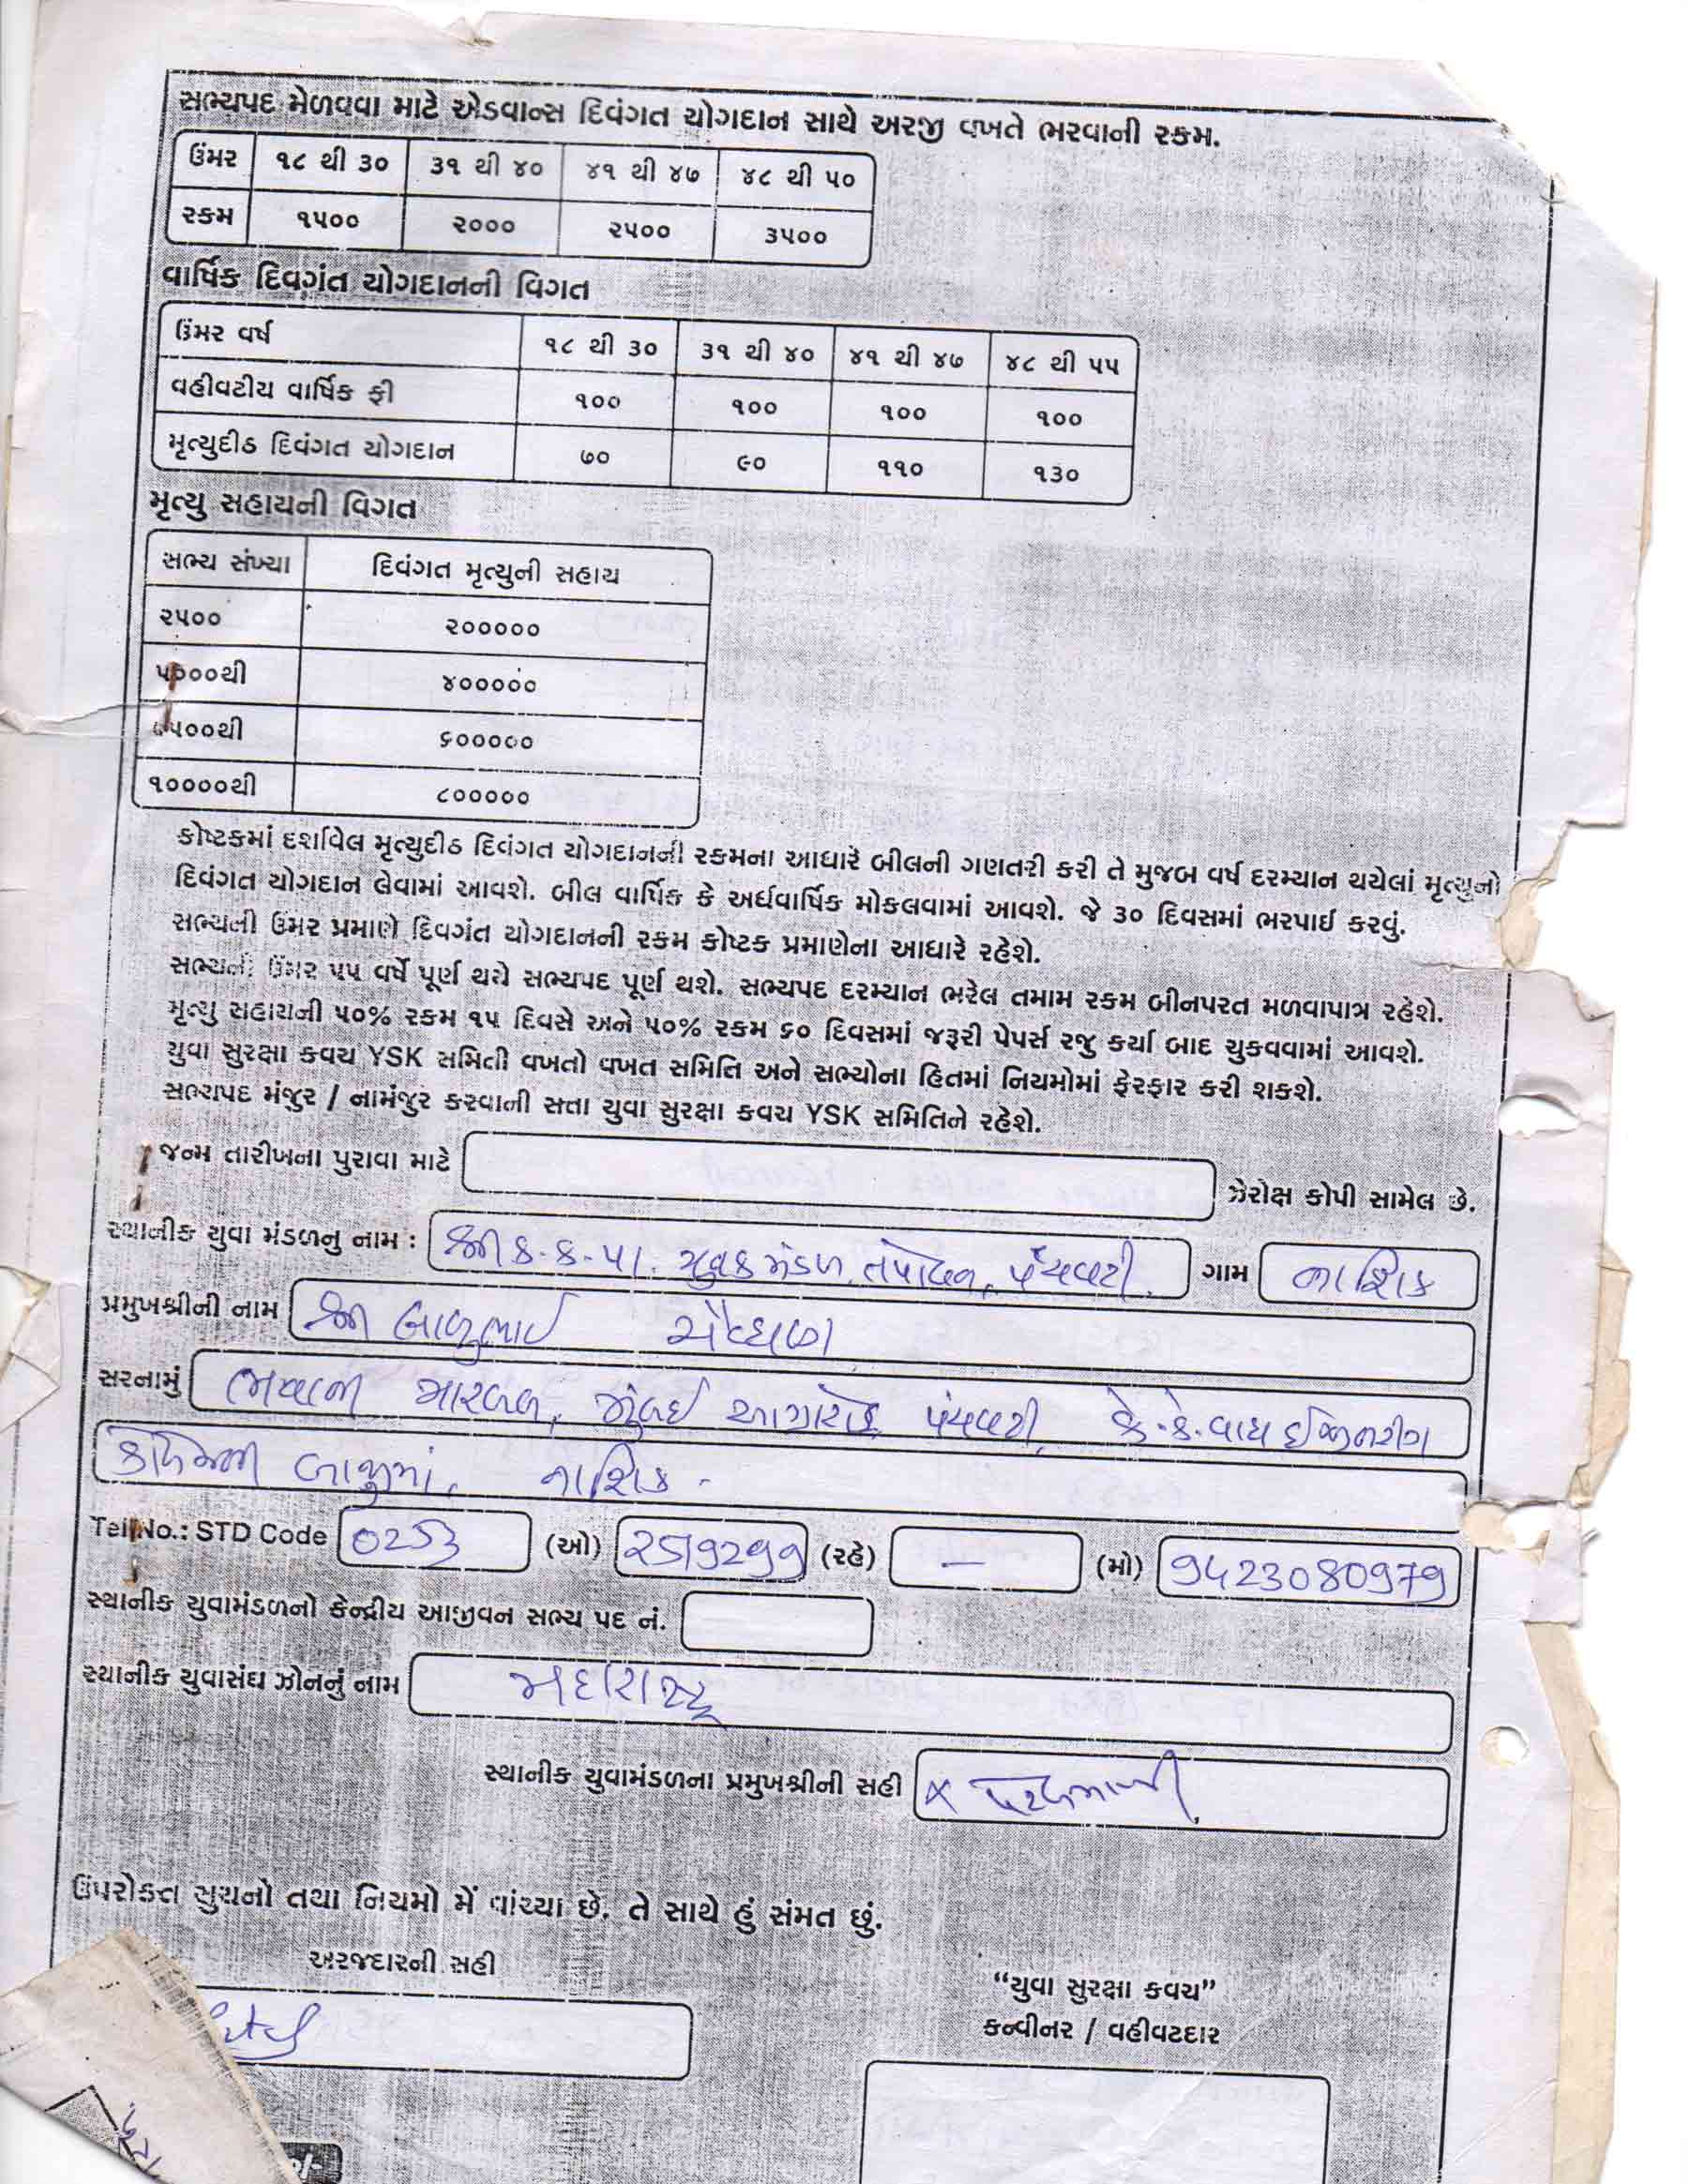 સભ્યપદ મેળવવા માટે એડવાન્સ દિવંગત યોગદાન સાથે અરજી વખતે ભરવાની રકમ.
ઉંમર ૧૮ થી ૩૦ ૩૧ થી ૪૦ ૪૧ થી ૪૭ ૪૮ થી ૫૦
રકમ ૧૫૦૦ ૨૦૦૦ ૨૫૦૦ ૩૫૦૦
વાર્ષિક દિવગંત યોગદાનની વિગત
ઉંમર વર્ષ ૧૮ થી ૩૦ ૩૧ થી ૪૦ ૪૧ થી ૪૭ ૪૮ થી ૫૫
વહીવટીય વાર્ષિક ફી ૧૦૦ ૧૦૦ ૧૦૦ ૧૦૦
મૃત્યુદીઠ દિવંગત યોગદાન ૭૦ ૯૦ ૧૧૦ ૧૩૦
મૃત્યુ સહાયની વિગત
સભ્ય સંખ્યા દિવંગત મૃત્યુની સહાય
૨૫૦૦ ૨૦૦૦૦૦
૫૦૦૦થી ૪૦૦૦૦૦
૭૫૦૦થી ૬૦૦૦૦૦
૧૦૦૦૦થી ૮૦૦૦૦૦
કોષ્ટકમાં દર્શાવેલ મૃત્યુદીઠ દિવંગત યોગદાનની રકમના આધારે બીલની ગણતરી કરી તે મુજબ વર્ષ દરમ્યાન થયેલાં મૃત્યુનો
દિવંગત યોગદાન લેવામાં આવશે. બીલ વાર્ષિક કે અર્ધવાર્ષિક મોકલવામાં આવશે. જે ૩૦ દિવસમાં ભરપાઈ કરવું.
સભ્યની ઉંમર પ્રમાણે દિવગંત યોગદાનની રકમ કોષ્ટક પ્રમાણેના આધારે રહેશે.
સભ્યની ઉંમર ૫૫ વર્ષે પૂર્ણ થયે સભ્યપદ પૂર્ણ થશે. સભ્યપદ દરમ્યાન ભરેલ તમામ રકમ બીનપરત મળવાપાત્ર રહેશે.
મૃત્યુ સહાયની ૫૦% રકમ ૧૫ દિવસે અને ૫૦% રકમ ૬૦ દિવસમાં જરૂરી પેપર્સ રજુ કર્યા બાદ ચુકવવામાં આવશે.
યુવા સુરક્ષા કવચ YSK સમિતી વખતો વખત સમિતિ અને સભ્યોના હિતમાં નિયમોમાં ફેરફાર કરી શકશે.
સભ્યપદ મંજુર / નામંજુર કરવાની સત્તા યુવા સુરક્ષા કવચ YSK સમિતિને રહેશે.
જન્મ તારીખના પુરાવા માટે ઝેરોક્ષ કોપી સામેલ છે.
સ્થાનીક યુવા મંડળનુ નામ : શ્રી ક.ક.પા. યુવક મંડળ, તપોવન, પંચવટી. ગામ નાશિક
પ્રમુખશ્રીની નામ શ્રી બાબુભાઈ
સરનામું ભવાની મારબલ, મુંબઈ આગ્રારોડ, પંચવટી, કે.કે.વાઘ ઈજીનરીગ
બાજુમાં, નાશિક.
Tel No.: STD Code 0253 (ઓ) 2519299 (રહે) — (મો) 9423080979
સ્થાનીક યુવામંડળનો કેન્દ્રીય આજીવન સભ્ય પદ નં.
સ્થાનીક યુવાસંઘ ઝોનનું નામ મહારાષ્ટ્ર
સ્થાનીક યુવામંડળના પ્રમુખશ્રીની સહી x
ઉપરોકત સુચનો તથા નિયમો મેં વાંચ્યા છે. તે સાથે હું સંમત છું.
અરજદારની સહી
“યુવા સુરક્ષા કવચ”
કન્વીનર / વહીવટદાર